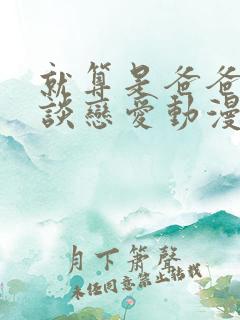 就算是爸爸
談戀愛動漫
月下簫聲
未經同意禁止轉載